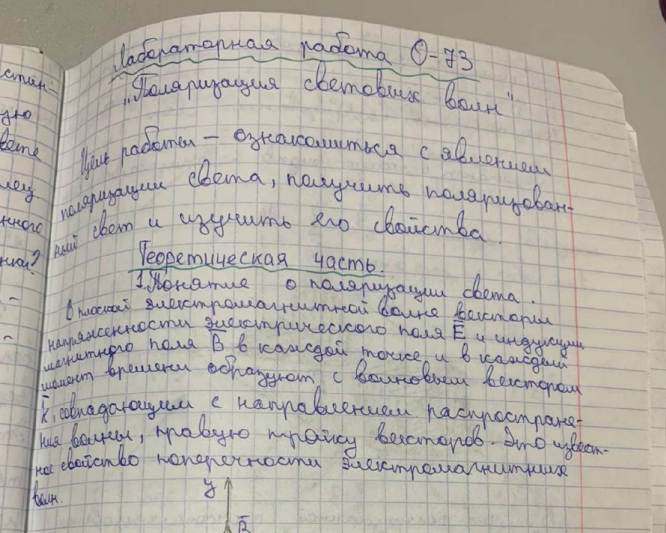 Лабораторная работа О-73
"Поляризация световых волн"
Цель работы – ознакомиться с явлением
поляризации света, получить поляризован-
ный свет и изучить его свойства.
Теоретическая часть.
1. Понятие о поляризации света.
В плоской электромагнитной волне векторы
напряженности электрического поля E̅ и индукции
магнитного поля B̅ в каждой точке и в каждый
момент времени образуют с волновым вектором
k̅, совпадающим с направлением распростране-
ния волны, правую тройку векторов. Это извест-
ное свойство поперечности электромагнитных
волн.
y
B̅
нного